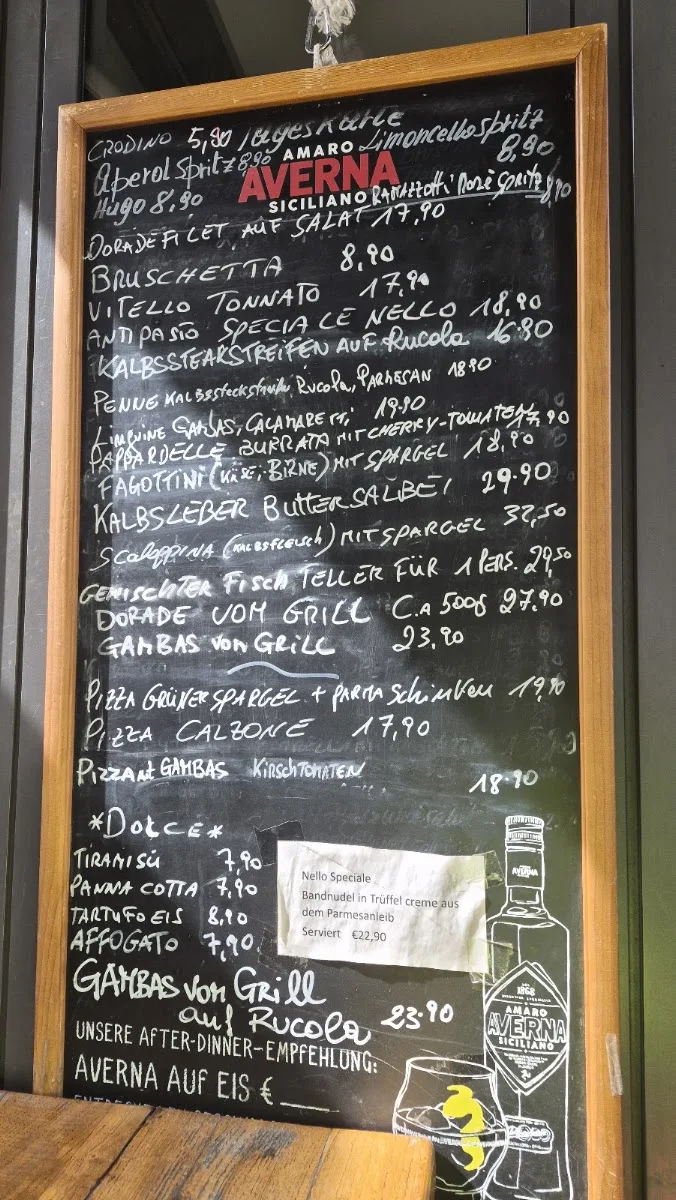 CRODINO 5,90 Tageskarte Limoncello Spritz 8,90
Aperol Spritz 8,90
AMARO
AVERNA
SICILIANO
Hugo 8,90
RAMAZZOTTI Rosè SPRITZ 8,90
DORADEFILET AUF SALAT 17,90
BRUSCHETTA 8,90
VITELLO TONNATO 17,90
ANTIPASTO SPECIALE NELLO 18,90
KALBSSTEAKSTREIFEN AUF Rucola 16.90
PENNE KALBSsteckstreifen Rucola, PARMESAN 18.90
LINGUINE GAMBAS, CALAMARETTI 19.90
PAPPARDELLE BURRATA MIT CHERRY-TOMATEN 17,90
FAGOTTINI (KÄSE,-BIRNE) MIT SPARGEL 18,90
KALBSLEBER BUTTERSALBEI 29.90
Scaloppina (KALBSFLEISCH) MIT SPARGEL 32,50
GEMISCHTER FISCH TELLER FÜR 1 PERS. 29,50
DORADE VOM GRILL C.A 500g 27.90
GAMBAS VOM GRILL 23.90
PIZZA GRÜNER SPARGEL + PARMA Schinken 19,90
PIZZA CALZONE 17,90
PIZZA mit GAMBAS KIRSCHTOMATEN 18.90
*DOLCE*
TIRAMISÚ 7,90
PANNA COTTA 7,90
TARTUFO EIS 8,90
AFFOGATO 7,90
Nello Speciale
Bandnudel in Trüffel creme aus
dem Parmesanleib
Serviert €22,90
GAMBAS vom Grill
auf Rucola 23.90
UNSERE AFTER-DINNER-EMPFEHLUNG:
AVERNA AUF EIS € ____
AVERNA
1868
AMARO
AVERNA
SICILIANO